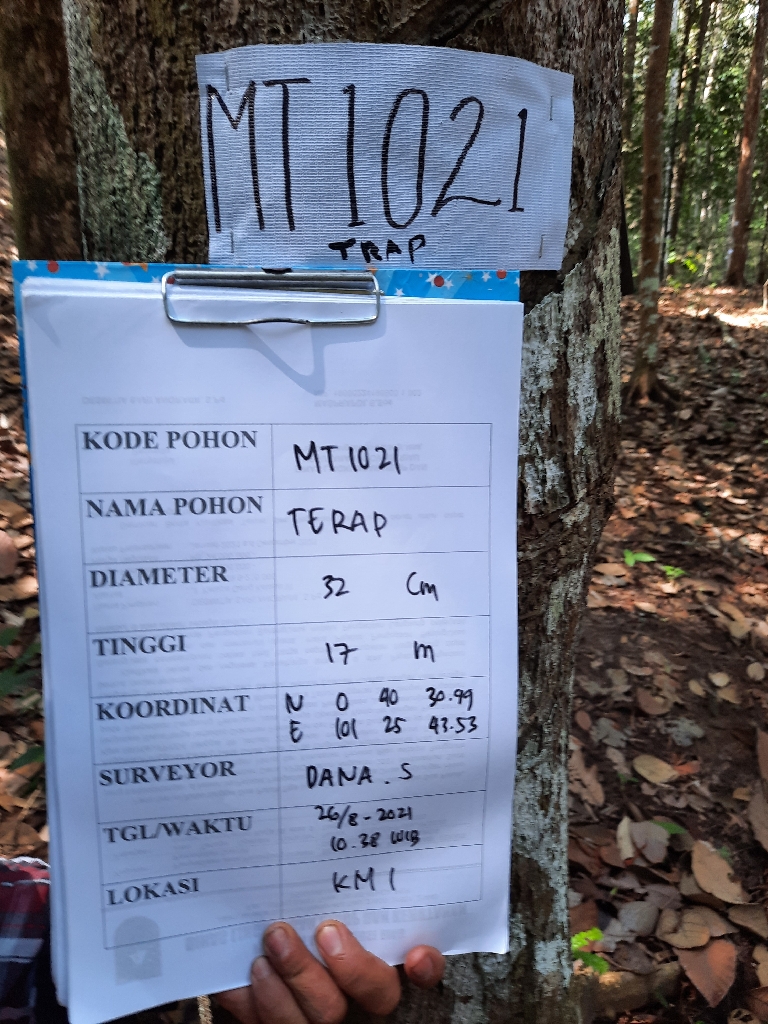 MT1021
TRAP
KODE POHON MT1021
NAMA POHON TERAP
DIAMETER 32 Cm
TINGGI 17 m
KOORDINAT N 0 40 30.99
E 101 25 43.53
SURVEYOR DANA . S
TGL/WAKTU 26/8 - 2021
10.38 WIB
LOKASI KM 1